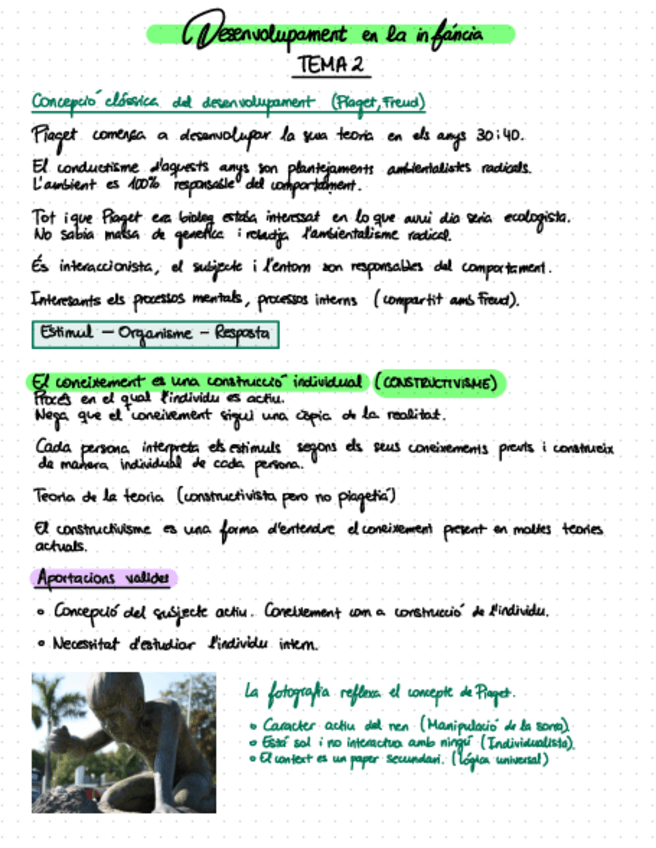 Desenvolupament en la infáncia
TEMA 2
Concepció clássica del desenvolupament (Piaget, Freud)
Piaget comença a desenvolupar la seua teoria en els anys 30 i 40.
El conductisme d'aquests anys son plantejaments ambientalistes radicals.
L'ambient es 100% responsable del comportament.
Tot i que Piaget era bioleg estaba interessat en lo que avui dia seria ecologista.
No sabia massa de genetica i rebutja l'ambientalisme radical.
És interaccionista, el subjecte i l'entorn son responsables del comportament.
Interesants els processos mentals, processos interns (compartit amb Freud).
Estimul – Organisme – Resposta
El coneixement es una construcció individual (CONSTRUCTIVISME)
Procés en el qual l'individu es actiu.
Nega que el coneixement sigui una còpia de la realitat.
Cada persona interpreta els estimuls segons els seus coneixements previs i construeix
de manera individual de cada persona.
Teoria de la teoria (constructivista pero no piagetiá)
El constructivisme es una forma d'entendre el coneixement present en moltes teories
actuals.
Aportacions valides
• Concepció del subjecte actiu. Coneixement com a construcció de l'individu.
• Necessitat d'estudiar l'individu intern.
La fotografia reflexa el concepte de Piaget.
• Caracter actiu del nen (Manipulació de la sorra).
• Está sol i no interactua amb ningú (Individualista).
• El context es un paper secundari. (Lógica universal)